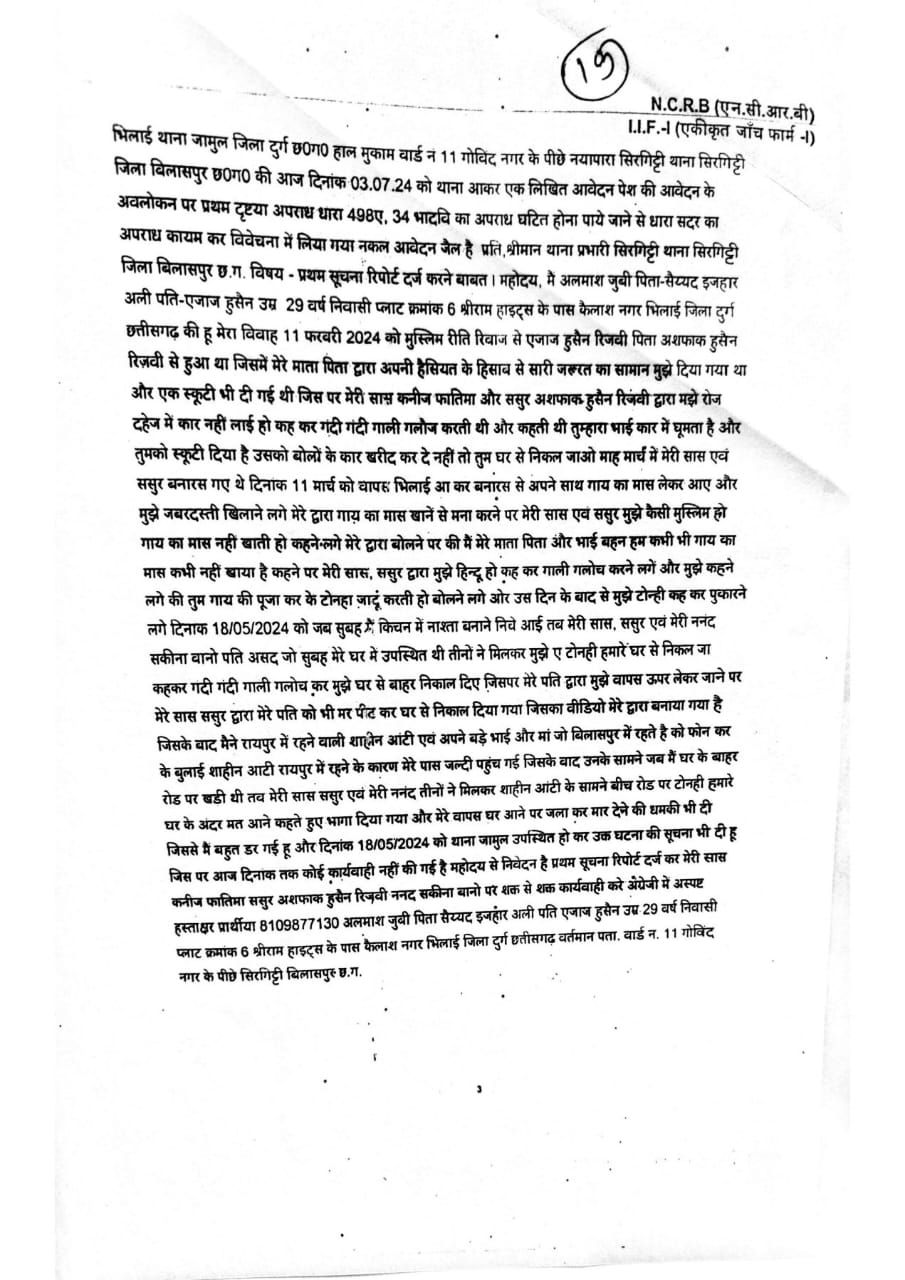 1क
N.C.R.B (एन.सी.आर.बी)
I.I.F.-I (एकीकृत जाँच फार्म -I)
भिलाई थाना जामुल जिला दुर्ग छ0ग0 हाल मुकाम वार्ड नं 11 गोविंद नगर के पीछे नयापारा सिरगिट्टी थाना सिरगिट्टी
जिला बिलासपुर छ0ग0 की आज दिनांक 03.07.24 को थाना आकर एक लिखित आवेदन पेश की आवेदन के
अवलोकन पर प्रथम दृष्टया अपराध धारा 498ए, 34 भादवि का अपराध घटित होना पाये जाने से धारा सदर का
अपराध कायम कर विवेचना में लिया गया नकल आवेदन जैल है प्रति,श्रीमान थाना प्रभारी सिरगिट्टी थाना सिरगिट्टी
जिला बिलासपुर छ.ग. विषय - प्रथम सूचना रिपोर्ट दर्ज करने बाबत। महोदय, मैं अलमाश जुबी पिता-सैय्यद इजहार
अली पति-एजाज हुसैन उम्र 29 वर्ष निवासी प्लाट क्रमांक 6 श्रीराम हाइट्स के पास कैलाश नगर भिलाई जिला दुर्ग
छत्तीसगढ़ की हू मेरा विवाह 11 फरवरी 2024 को मुस्लिम रीति रिवाज से एजाज हुसैन रिजवी पिता अशफाक हुसैन
रिज़वी से हुआ था जिसमें मेरे माता पिता द्वारा अपनी हैसियत के हिसाब से सारी जरूरत का सामान मुझे दिया गया था
और एक स्कूटी भी दी गई थी जिस पर मेरी सास कनीज फातिमा और ससुर अशफाक हुसैन रिजवी द्वारा मझे रोज
दहेज में कार नहीं लाई हो कह कर गंदी गंदी गाली गलौज करती थी और कहती थी तुम्हारा भाई कार में घूमता है और
तुमको स्कूटी दिया है उसको बोलों के कार खरीद कर दे नहीं तो तुम घर से निकल जाओ माह मार्च में मेरी सास एवं
ससुर बनारस गए थे दिनांक 11 मार्च को वापस भिलाई आ कर बनारस से अपने साथ गाय का मास लेकर आए और
मुझे जबरदस्ती खिलाने लगे मेरे द्वारा गाय का मास खानें से मना करने पर मेरी सास एवं ससुर मुझे कैसी मुस्लिम हो
गाय का मास नहीं खाती हो कहने लगे मेरे द्वारा बोलने पर की मैं मेरे माता पिता और भाई बहन हम कभी भी गाय का
मास कभी नहीं खाया है कहने पर मेरी सास, ससुर द्वारा मुझे हिन्दू हो कह कर गाली गलोच करने लगें और मुझे कहने
लगे की तुम गाय की पूजा कर के टोनहा जादूं करती हो बोलने लगे ओर उस दिन के बाद से मुझे टोन्ही कह कर पुकारने
लगे दिनाक 18/05/2024 को जब सुबह मैं किचन में नाश्ता बनाने निचे आई तब मेरी सास, ससुर एवं मेरी ननंद
सकीना वानो पति असद जो सुबह मेरे घर में उपस्थित थी तीनों ने मिलकर मुझे ए टोनही हमारे घर से निकल जा
कहकर गंदी गंदी गाली गलोच कर मुझे घर से बाहर निकाल दिए जिसपर मेरे पति द्वारा मुझे वापस ऊपर लेकर जाने पर
मेरे सास ससुर द्वारा मेरे पति को भी मर पीट कर घर से निकाल दिया गया जिसका वीडियो मेरे द्वारा बनाया गया है
जिसके बाद मैने रायपुर में रहने वाली शाहीन आंटी एवं अपने बड़े भाई और मां जो बिलासपुर में रहते है को फोन कर
के बुलाई शाहीन आटी रायपुर में रहने के कारण मेरे पास जल्दी पहुंच गई जिसके बाद उनके सामने जब मैं घर के बाहर
रोड पर खडी थी तव मेरी सास ससुर एवं मेरी ननंद तीनों ने मिलकर शाहीन आंटी के सामने बीच रोड पर टोनही हमारे
घर के अंदर मत आने कहते हुए भागा दिया गया और मेरे वापस घर आने पर जला कर मार देने की धमकी भी दी
जिससे मैं बहुत डर गई हू और दिनांक 18/05/2024 को थाना जामुल उपस्थित हो कर उक्त घटना की सूचना भी दी हू
जिस पर आज दिनांक तक कोई कार्यवाही नहीं की गई है महोदय से निवेदन है प्रथम सूचना रिपोर्ट दर्ज कर मेरी सास
कनीज फातिमा ससुर अशफाक हुसैन रिजवी ननद सकीना बानो पर शक्त से शक्त कार्यवाही करे अंग्रेजी में अस्पष्ट
हस्ताक्षर प्रार्थीया 8109877130 अलमाश जुबी पिता सैय्यद इजहार अली पति एजाज हुसैन उम्र 29 वर्ष निवासी
प्लाट क्रमांक 6 श्रीराम हाइट्स के पास कैलाश नगर भिलाई जिला दुर्ग छत्तीसगढ़ वर्तमान पता. वार्ड न. 11 गोविंद
नगर के पीछे सिरगिट्टी बिलासपुर छ.ग.
3